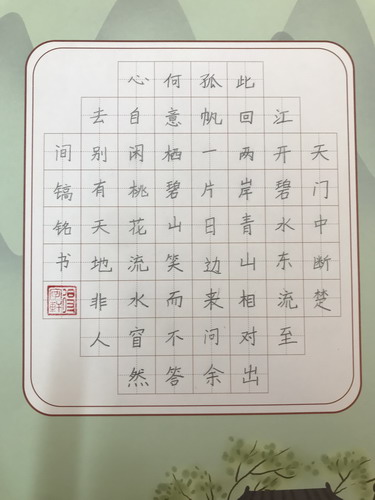 天门中断楚
江开碧水东流至
此回两岸青山相对出
孤帆一片日边来问余
何意栖碧山笑而不答
心自闲桃花流水窅然
去别有天地非人
间镐铭书